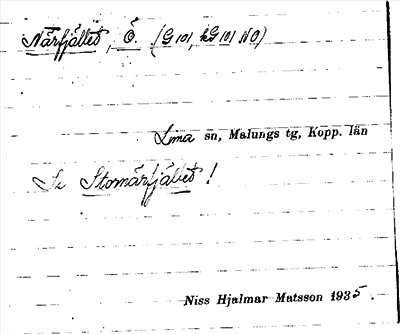 Närfjället, Ö. (G 101, kG 101 NO)
Lima sn, Malungs tg, Kopp. län
Se Stomärfjället!
Niss Hjalmar Matsson 1935.